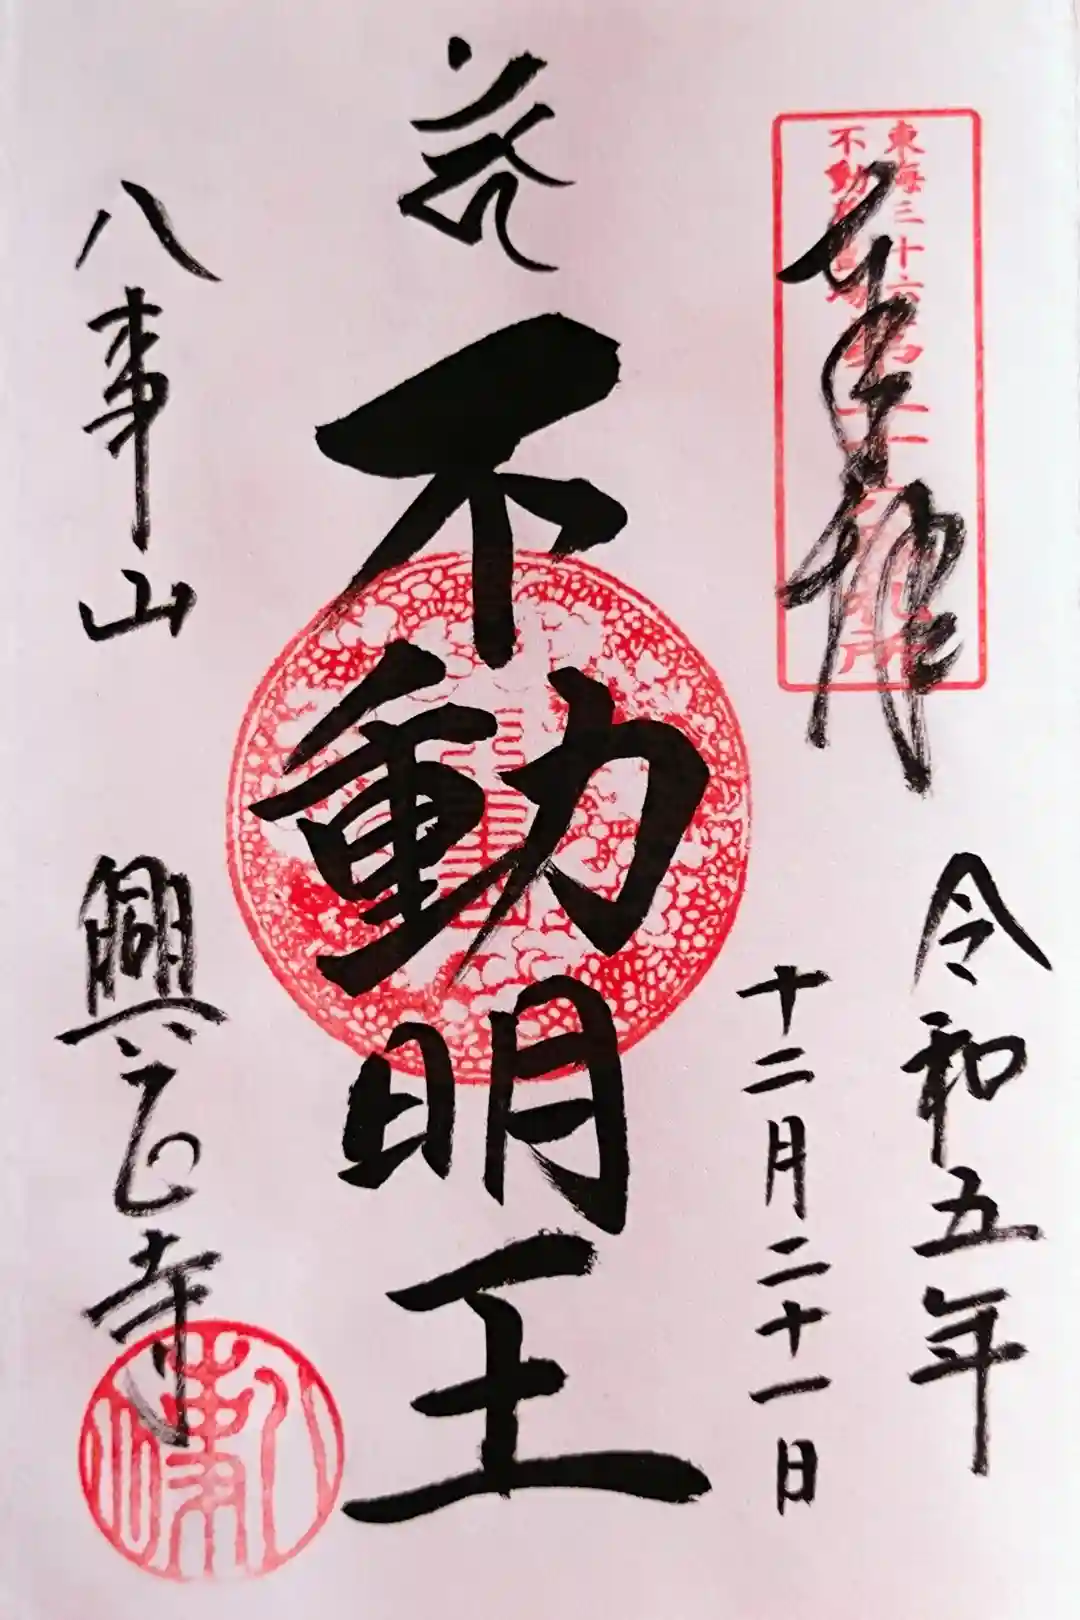 奉拝
東海三十六
不動尊霊場
第十一番札所
令和五年
十二月二十一日
不動明王
八事山
興正寺